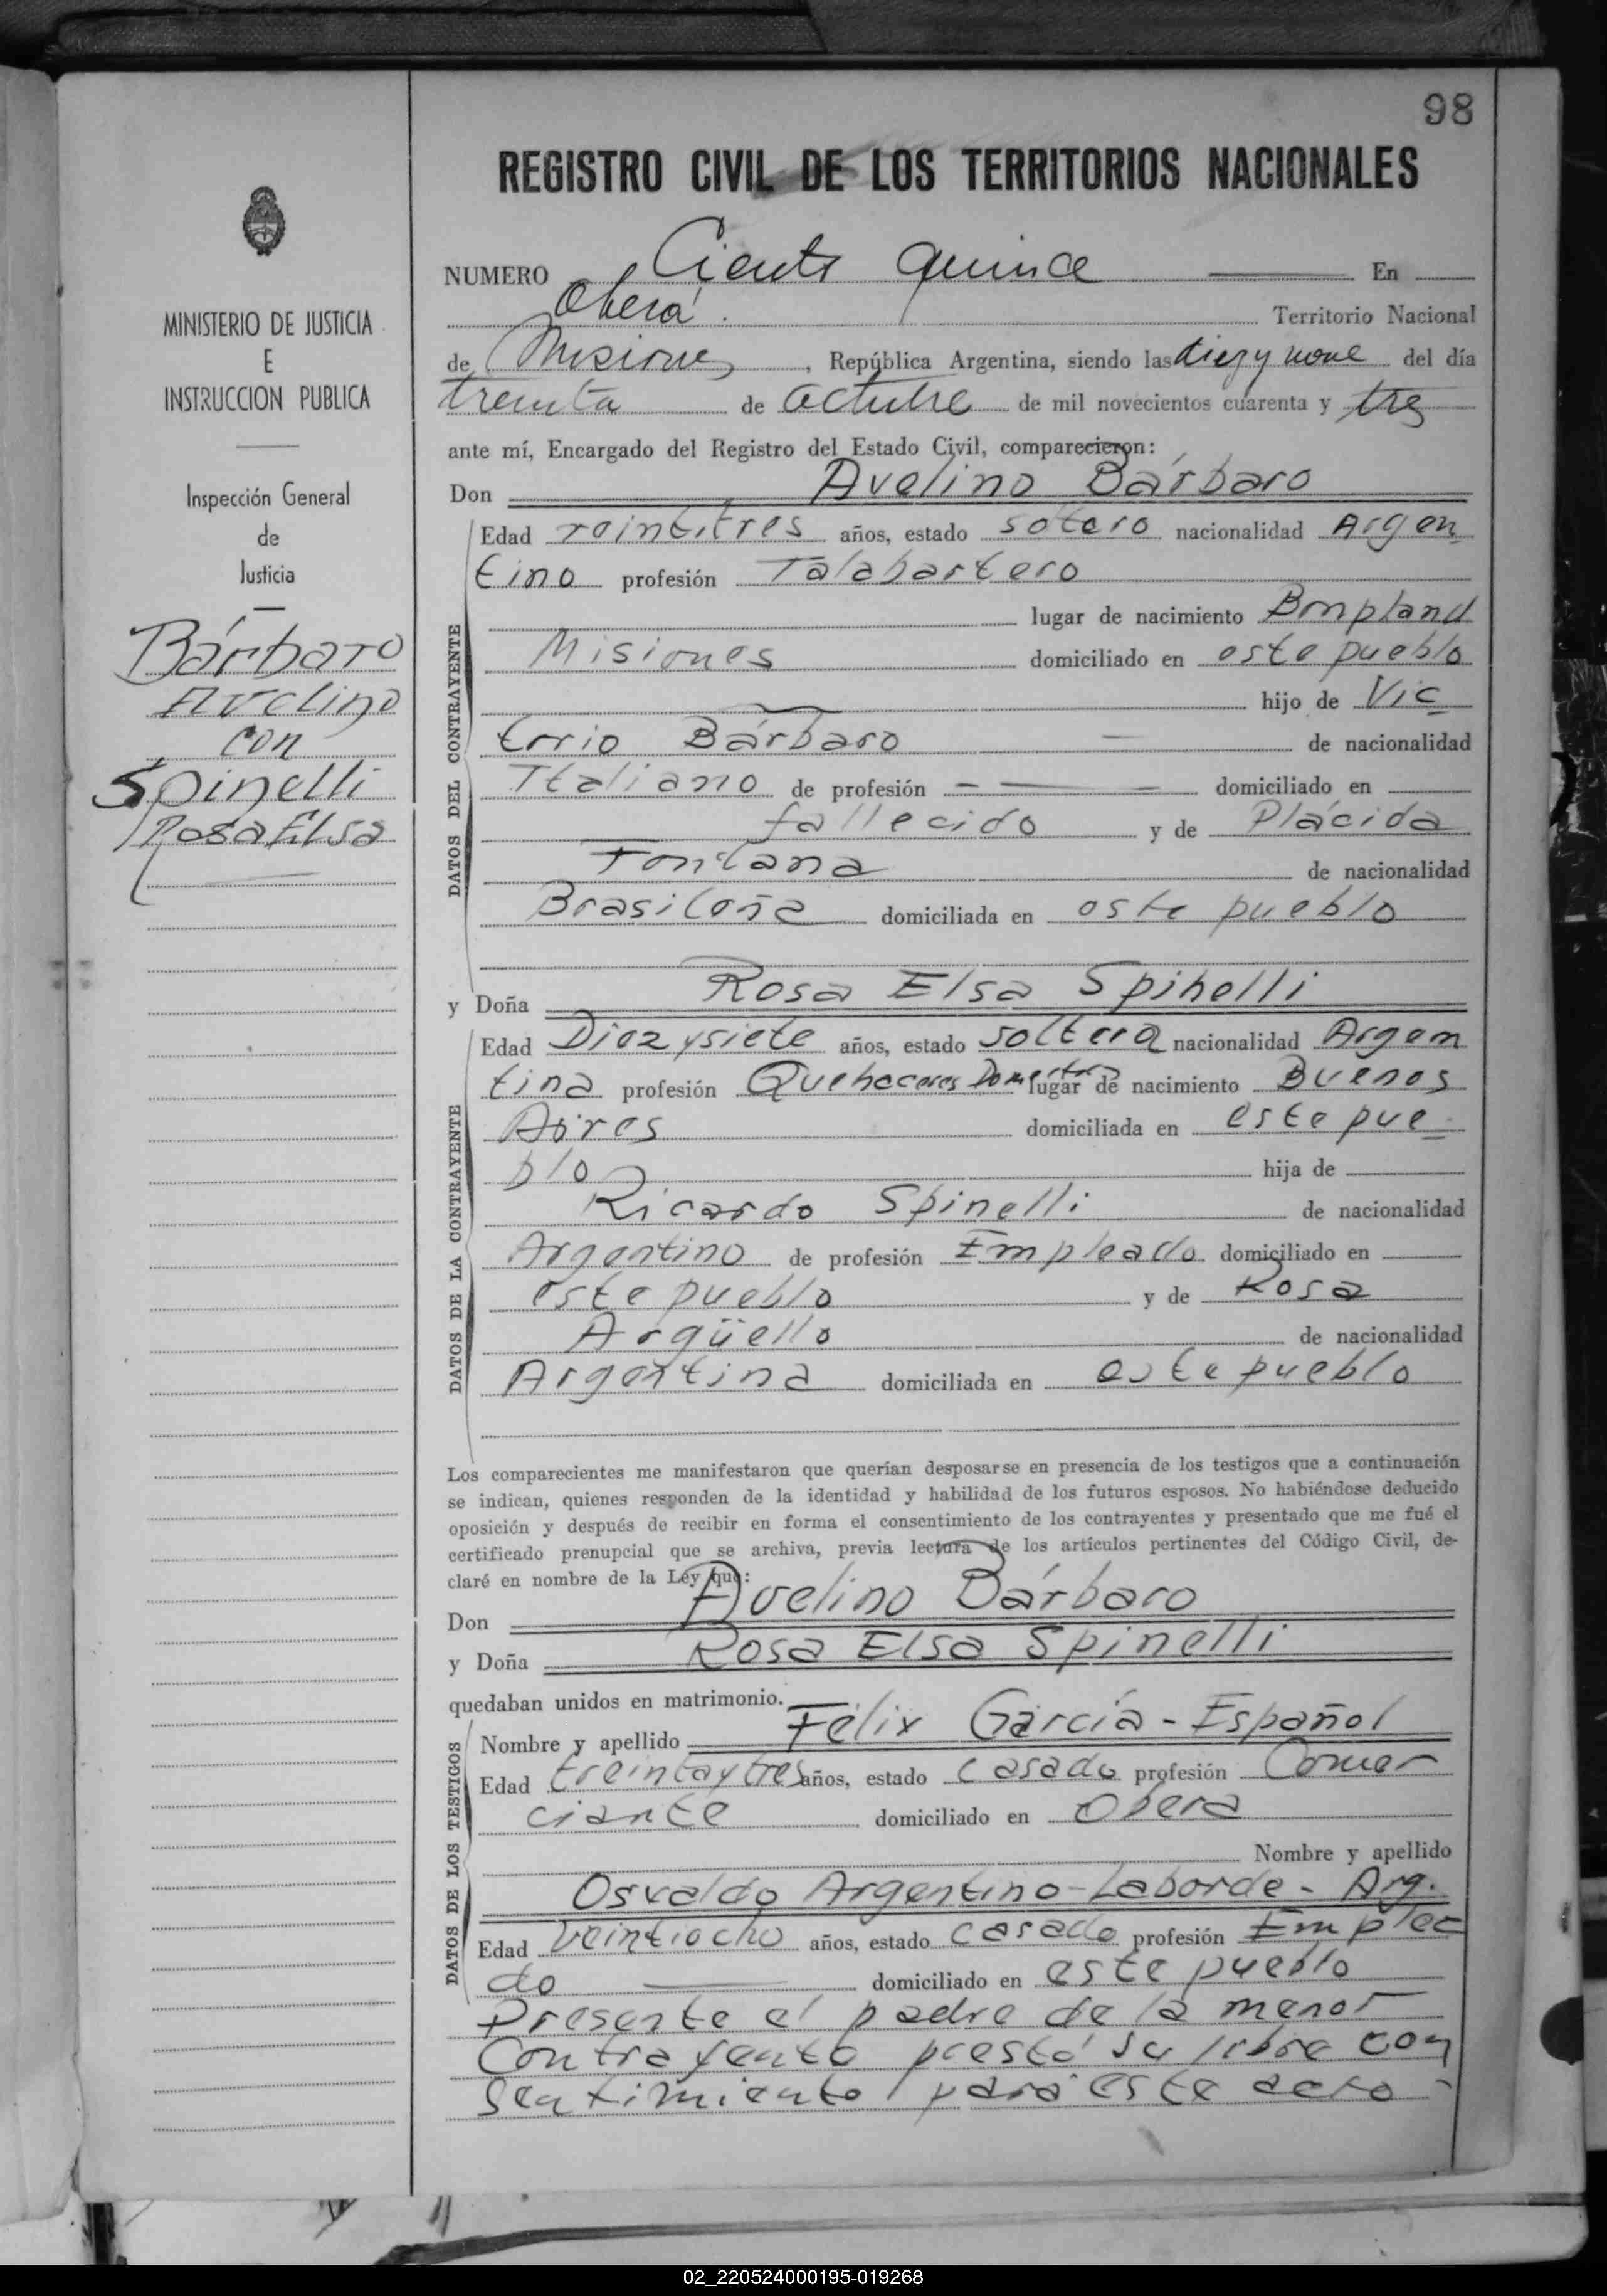 98
REGISTRO CIVIL DE LOS TERRITORIOS NACIONALES
NUMERO Ciento quince En
Oberá. Territorio Nacional
de Misiones, República Argentina, siendo las diez y nove del día
treinta de octubre de mil novecientos cuarenta y tres
ante mí, Encargado del Registro del Estado Civil, comparecieron:
Don Avelino Bárbaro
Edad veintitres años, estado soltero nacionalidad Argen
tino profesión Talabartero
lugar de nacimiento Bonpland
Misiones domiciliado en este pueblo
hijo de Vic
torio Bárbaro — de nacionalidad
Italiano de profesión — — domiciliado en
fallecido y de Plácida
Fontana de nacionalidad
Brasileña domiciliada en este pueblo
y Doña Rosa Elsa Spinelli
Edad Diez y siete años, estado soltera nacionalidad Argen
tina profesión Quehaceres Domesticos lugar de nacimiento Buenos
Aires domiciliada en este pue-
blo hija de
Ricardo Spinelli de nacionalidad
Argentino de profesión Empleado domiciliado en
este pueblo y de Rosa
Argüello de nacionalidad
Argentina domiciliada en este pueblo
Los comparecientes me manifestaron que querían desposarse en presencia de los testigos que a continuación
se indican, quienes responden de la identidad y habilidad de los futuros esposos. No habiéndose deducido
oposición y después de recibir en forma el consentimiento de los contrayentes y presentado que me fué el
certificado prenupcial que se archiva, previa lectura de los artículos pertinentes del Código Civil, de-
claré en nombre de la Ley que:
Don Avelino Bárbaro
y Doña Rosa Elsa Spinelli
quedaban unidos en matrimonio.
Nombre y apellido Félix García - Español
Edad treinta y tres años, estado casado profesión Comer
ciante domiciliado en Obera
Nombre y apellido
Osvaldo Argentino - Laborde - Arg.
Edad veintiocho años, estado casado profesión Emplea
do — domiciliado en este pueblo
Presente el padre de la menor
Contrayente prestó su libre con
sentimiento para este acto -
DATOS DEL CONTRAYENTE
DATOS DE LA CONTRAYENTE
DATOS DE LOS TESTIGOS
MINISTERIO DE JUSTICIA
E
INSTRUCCION PUBLICA
Inspección General
de
Justicia
Bárbaro
Avelino
con
Spinelli
Rosa Elsa
02_220524000195-019268